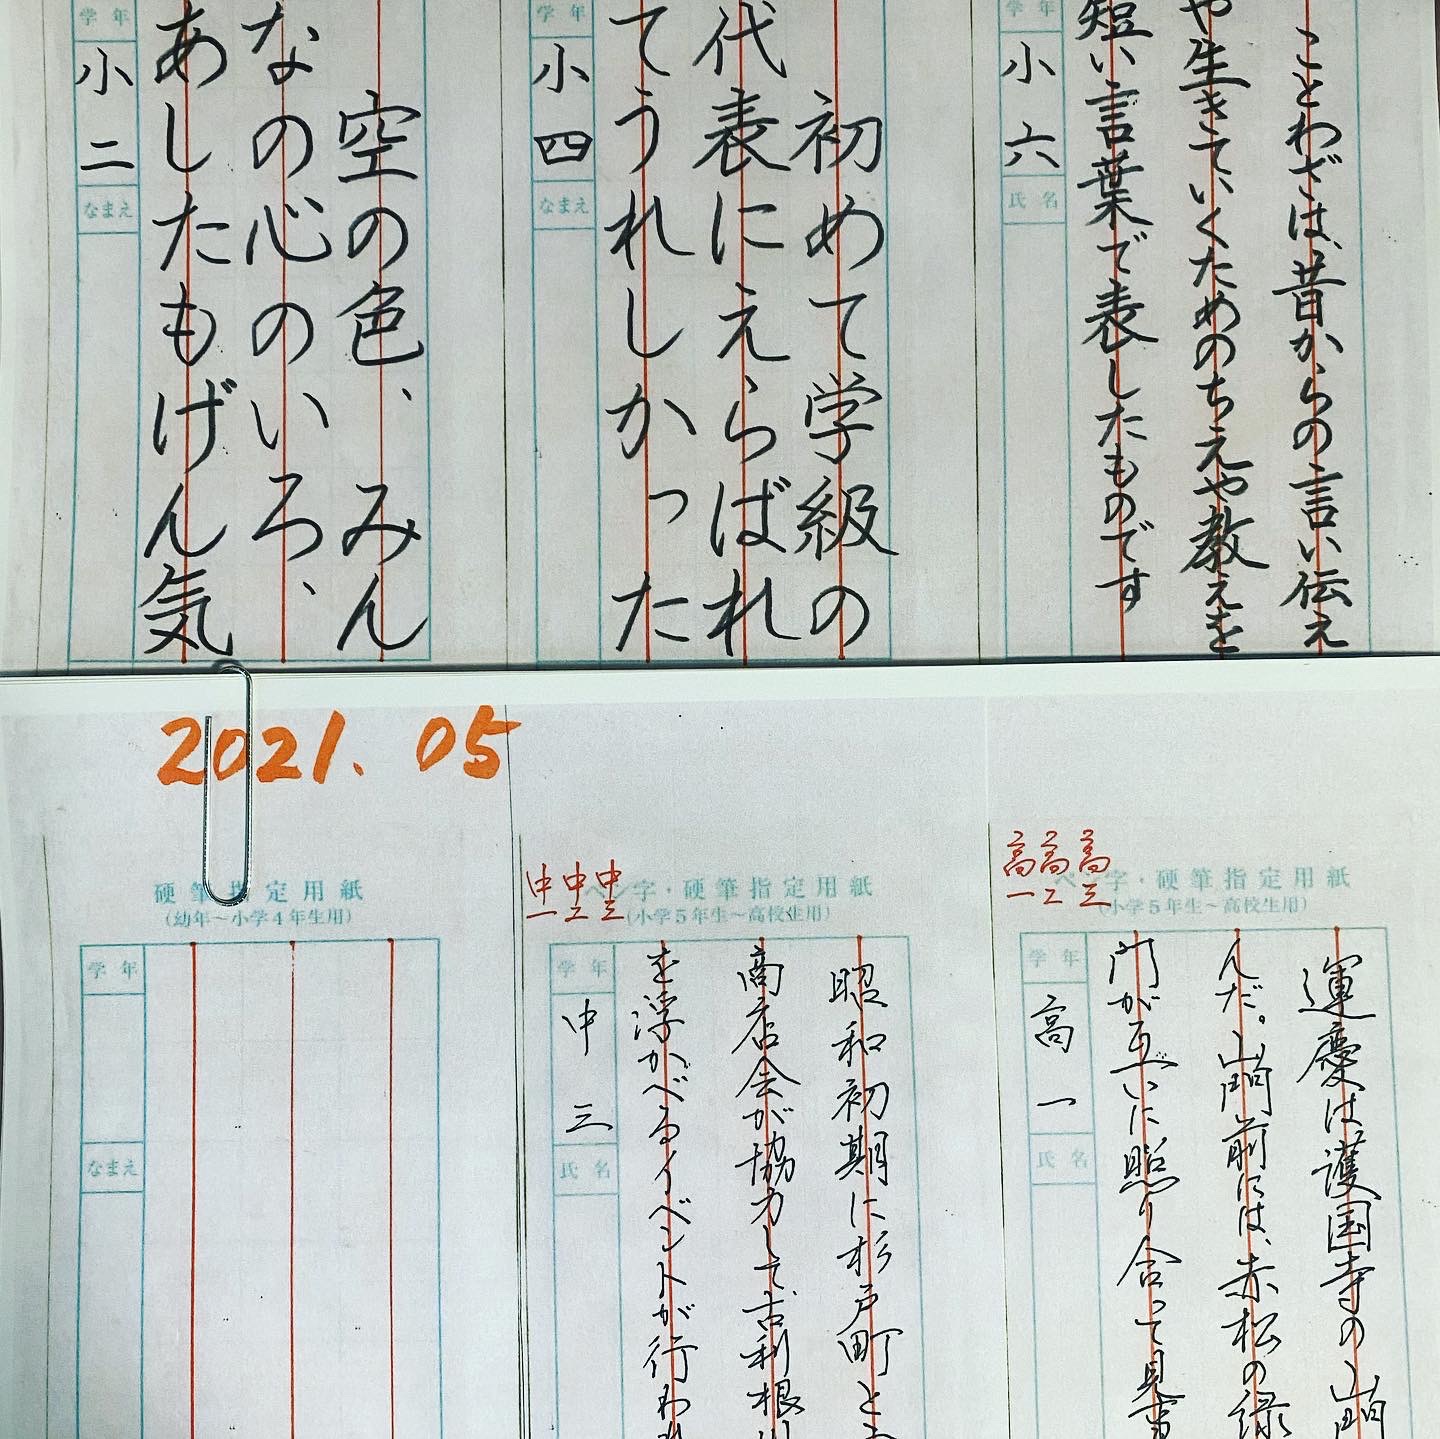 ことわざは、昔からの言い伝え
や生きていくためのちえや教えを
短い言葉で表したものです
学年
小六
氏名
初めて学級の
代表にえらばれ
てうれしかった
学年
小四
なまえ
空の色、みん
なの心のいろ、
あしたもげん気
学年
小二
なまえ
2021.05
高一 高二 高三
ペン字・硬筆指定用紙
(小学5年生~高校生用)
運慶は護国寺の山門
んだ。山門前には、赤松の緑
門が互いに照り合って見事
学年
高一
氏名
中一 中二 中三
ペン字・硬筆指定用紙
(小学5年生~高校生用)
昭和初期に杉戸町と
商店会が協力して古利根川
を浮かべるイベントが行われ
学年
中三
氏名
硬筆指定用紙
(幼年~小学4年生用)
学年
なまえ